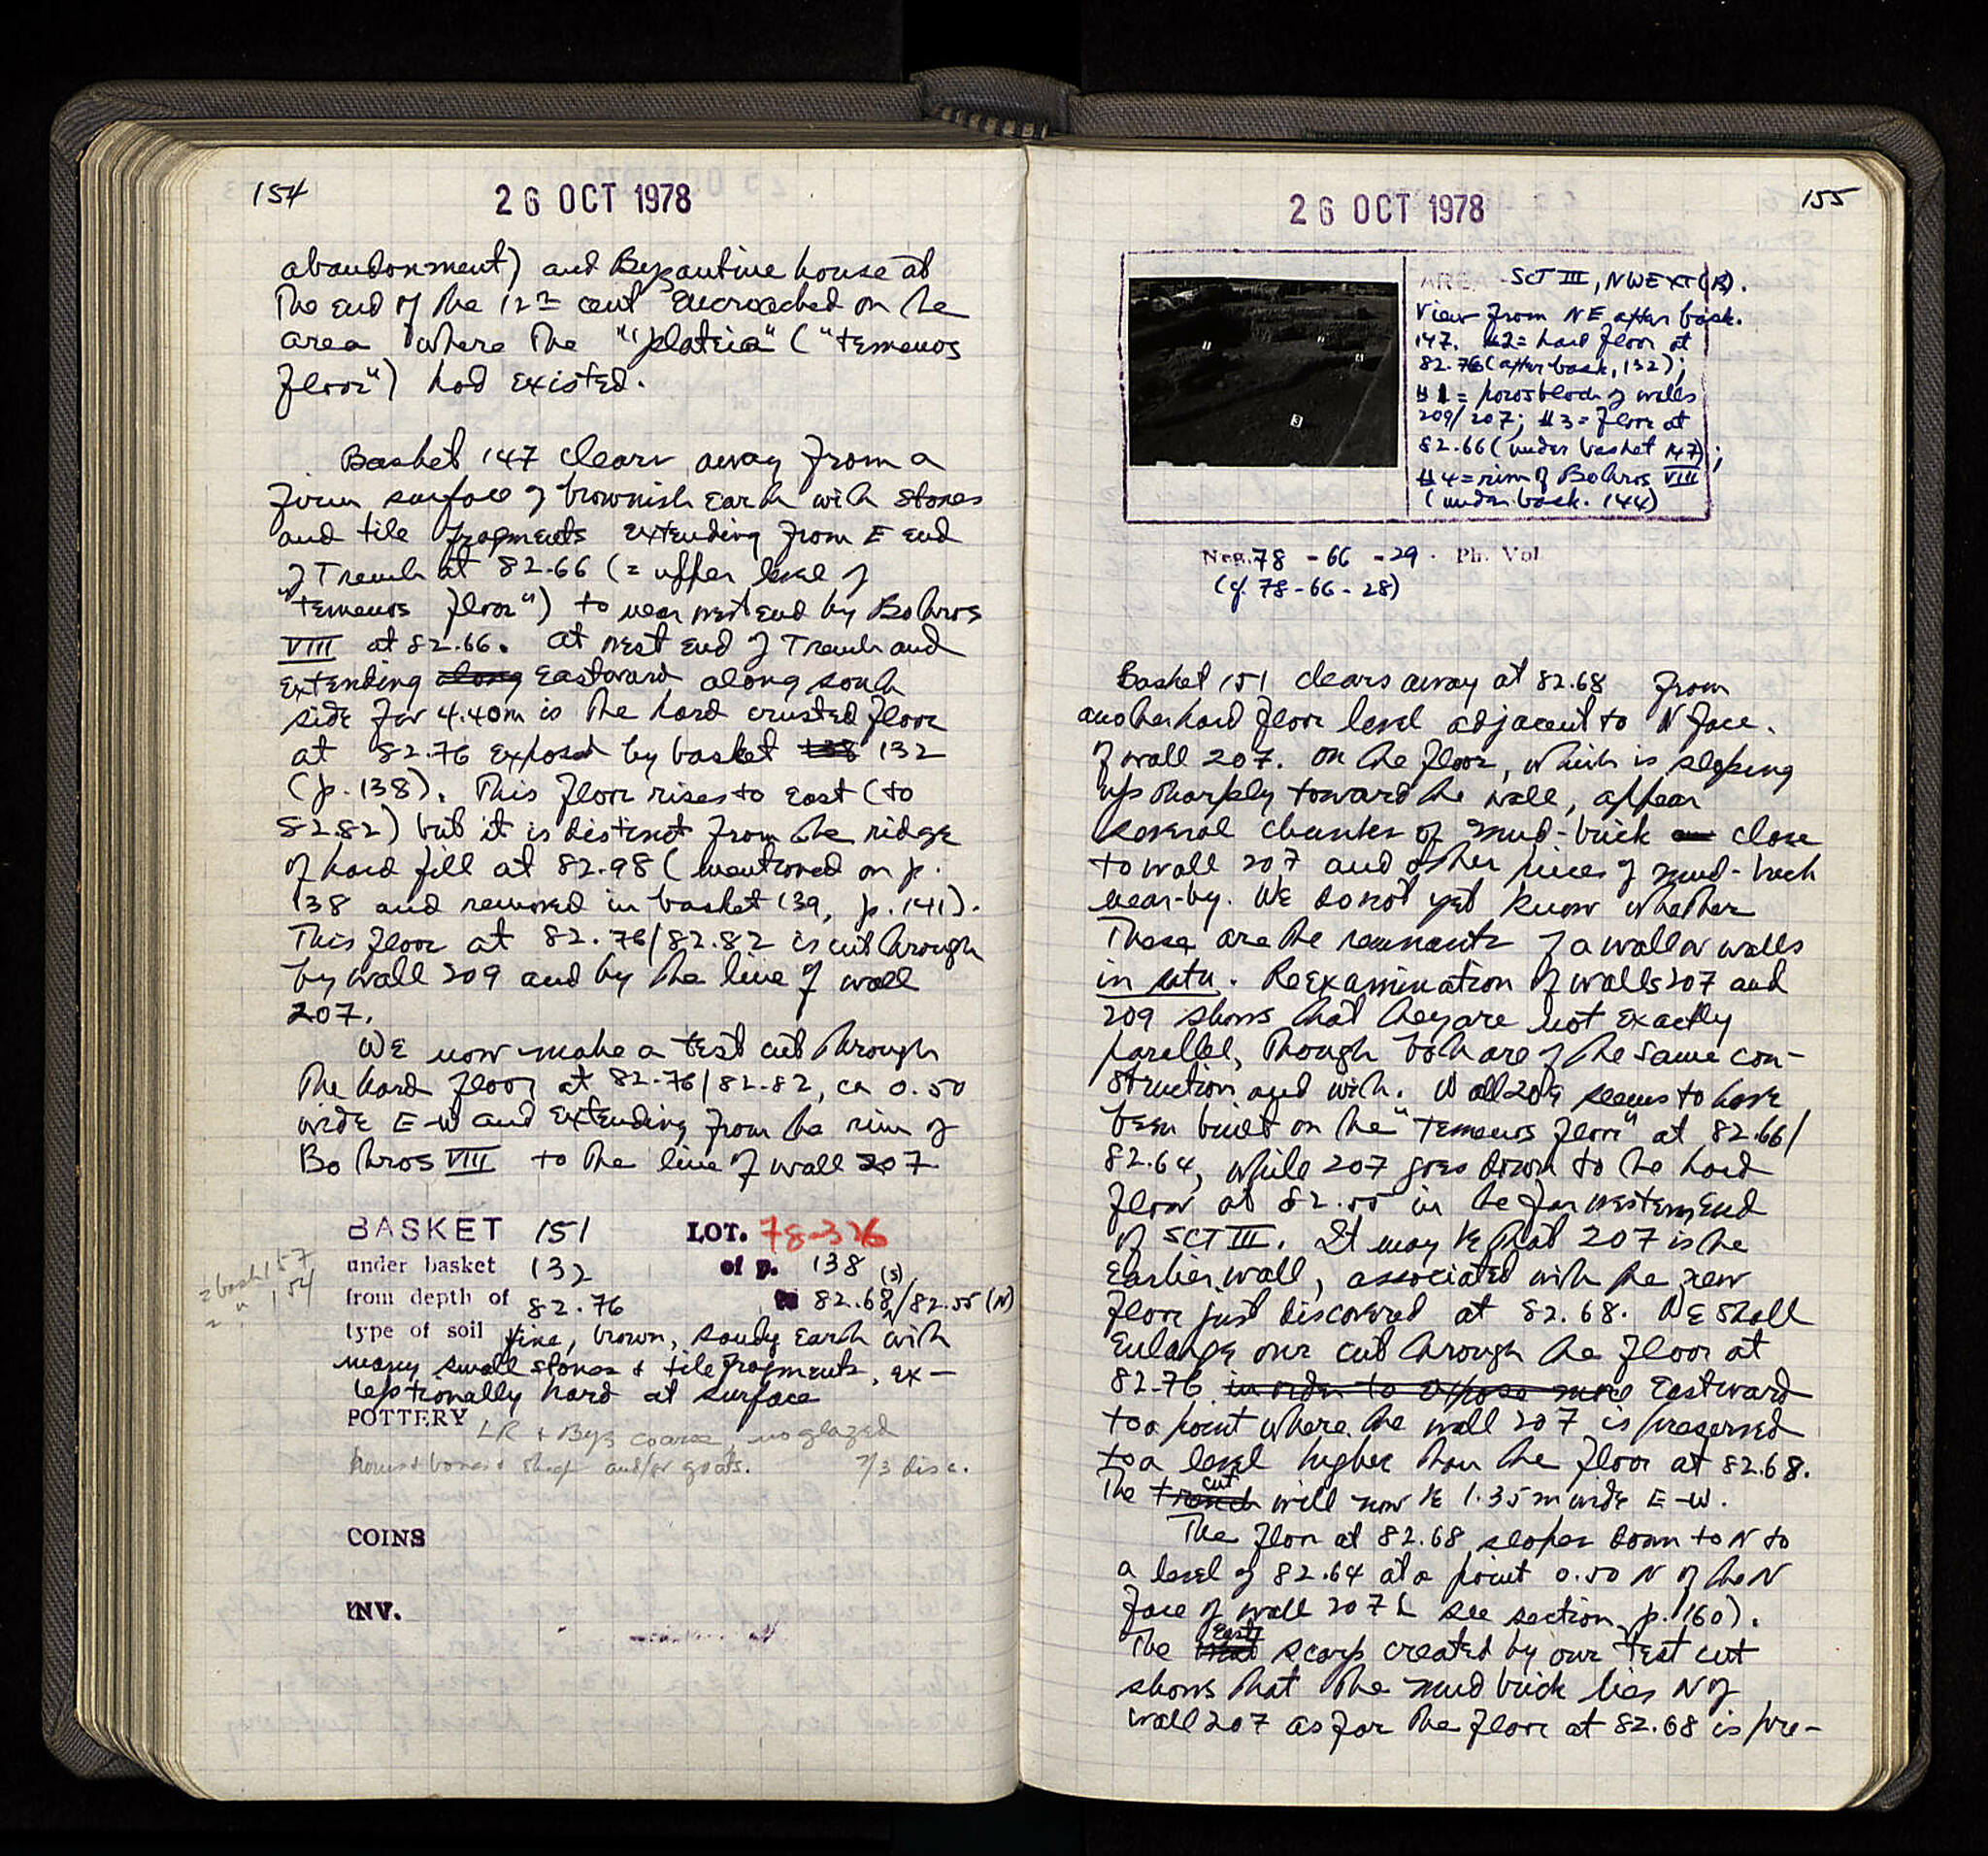 154
26 OCT 1978
abandonment) and Byzantine house at
the end of the 12th cent encroached on the
area where the "plateia" ("temenos
floor") had existed.
Basket 147 clears away from a
firm surface of brownish earth with stones
and tile fragments extending from E end
of Trench at 82.66 (= upper level of
"temenos floor") to near west end by Bothros
VIII at 82.66. At west end of Trench and
extending along Eastward along south
side for 4.40m is the hard crusted floor
at 82.76 exposed by basket 138 132
(p. 138). This floor rises to east (to
82.82) but it is distinct from the ridge
of hard fill at 82.98 (mentioned on p.
138 and removed in basket 139, p. 141).
This floor at 82.76/82.82 is cut through
by wall 209 and by the line of wall
207.
We now make a test cut through
the hard floor at 82.76/82.82, ca 0.50
wide E-W and extending from the rim of
Bothros VIII to the line of wall 207
BASKET 151 LOT. 78-326
under basket 132 of p. 138
from depth of 82.76 to 82.68 (S)/82.55 (N)
= bask 157
= " 154
type of soil fine, brown, sandy earth with
many small stones + tile fragments, ex-
ceptionally hard at surface
POTTERY LR + Byz coarse, no glazed
horns + bones + sheep and/or goats. 2/3 disc.
COINS
INV.
155
26 OCT 1978
AREA SCT III, NW EXT (B).
View from NE after bask.
147. #2 = hard floor at
82.76 (after bask. 132);
#1 = poros block of walls
209/207; #3 = floor at
82.66 (under basket 147);
#4 = rim of Bothros VIII
(under bask. 144)
3
Neg. 78 - 66 - 29. Ph. Vol.
(cf. 78-66-28)
Basket 151 clears away at 82.68 from
another hard floor level adjacent to N face.
of wall 207. On the floor, which is sloping
up sharply toward the wall, appear
several chunks of mud-brick close
to wall 207 and other pieces of mud-brick
near-by. We do not yet know whether
these are the remnants of a wall or walls
in situ. Reexamination of walls 207 and
209 shows that they are not exactly
parallel, though both are of the same con-
struction and width. Wall 209 seems to have
been built on the "temenos floor" at 82.66/
82.64, while 207 goes down to the hard
floor at 82.55 in the far western end
of SCT III. It may be that 207 is the
earlier wall, associated with the new
floor just discovered at 82.68. We shall
enlarge our cut through the floor at
82.76 in order to expose more Eastward
to a point where the wall 207 is preserved
to a level higher than the floor at 82.68.
The trench cut will now be 1.35m wide E-W.
The floor at 82.68 slopes down to N to
a level of 82.64 at a point 0.50 N of the N
face of wall 207 (see section, p. 160).
The East scarp created by our test cut
shows that the mud brick lies N of
wall 207 as far the floor at 82.68 is pre-